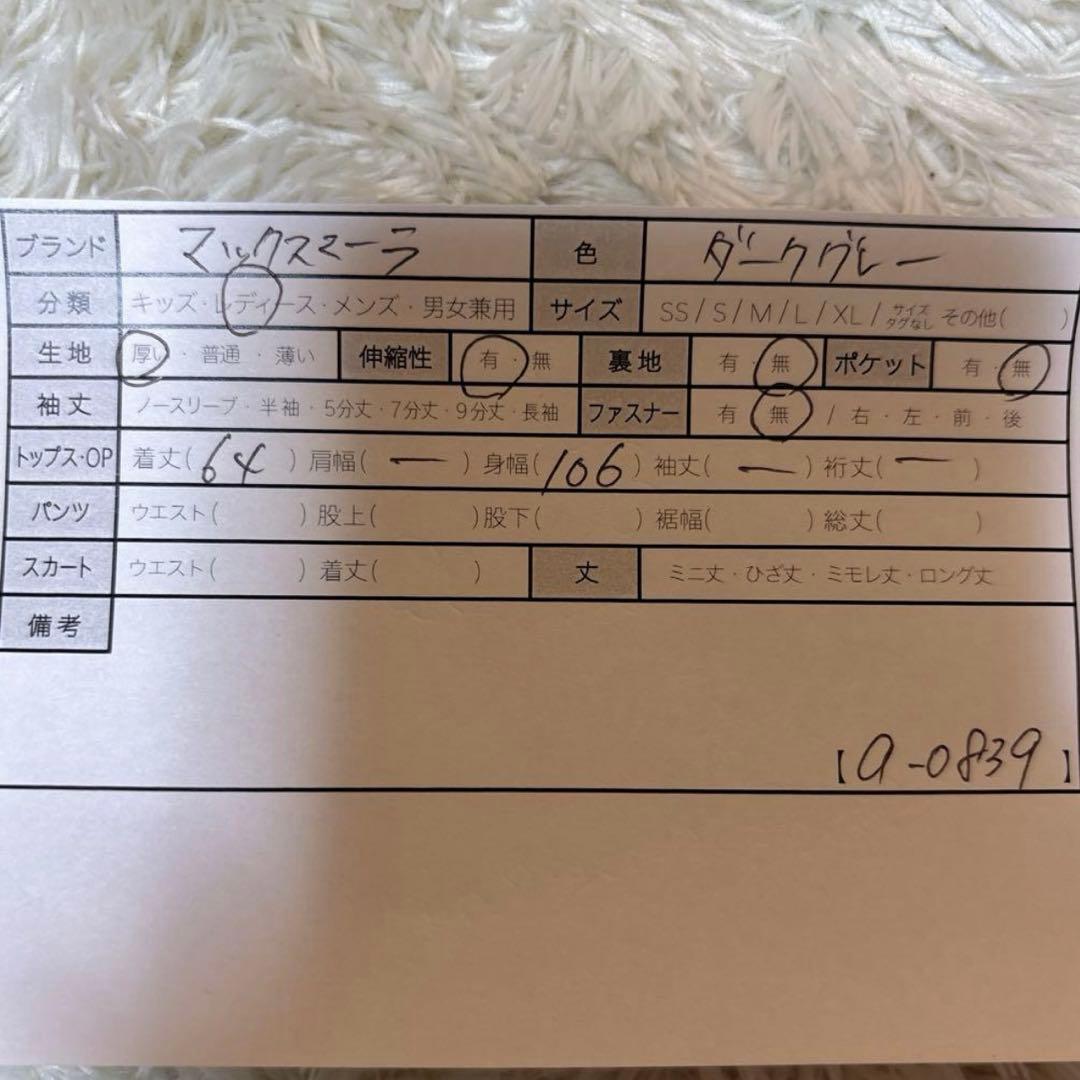 ブランド マックスマーラ 色 ダークグレー
分類 キッズ・レディース・メンズ・男女兼用 サイズ SS/S/M/L/XL/サイズタグなし その他( )
生地 厚い・普通・薄い 伸縮性 有・無 裏地 有・無 ポケット 有・無
袖丈 ノースリーブ・半袖・5分丈・7分丈・9分丈・長袖 ファスナー 有・無 / 右・左・前・後
トップス・OP 着丈(64) 肩幅(ー) 身幅(106) 袖丈(ー) 裄丈(ー)
パンツ ウエスト( ) 股上( ) 股下( ) 裾幅( ) 総丈( )
スカート ウエスト( ) 着丈( ) 丈 ミニ丈・ひざ丈・ミモレ丈・ロング丈
備考
【a-0839】